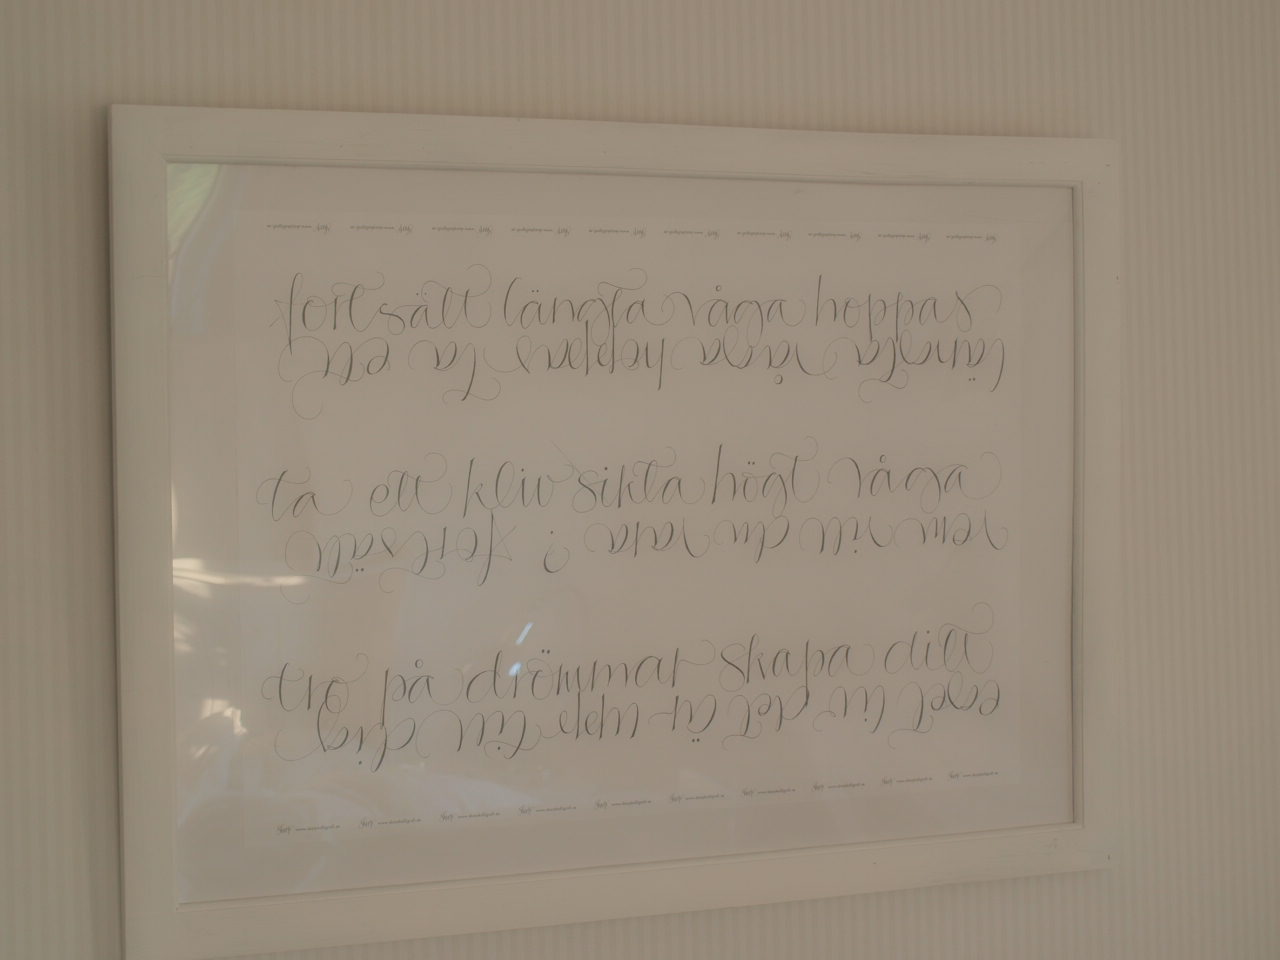 fortsätt längta våga hoppas
längta våga hoppas ta ett
ta ett kliv sikta högt våga
vem vill du vara ? fortsätt
tro på drömmar skapa ditt
eget liv det är upp till dig